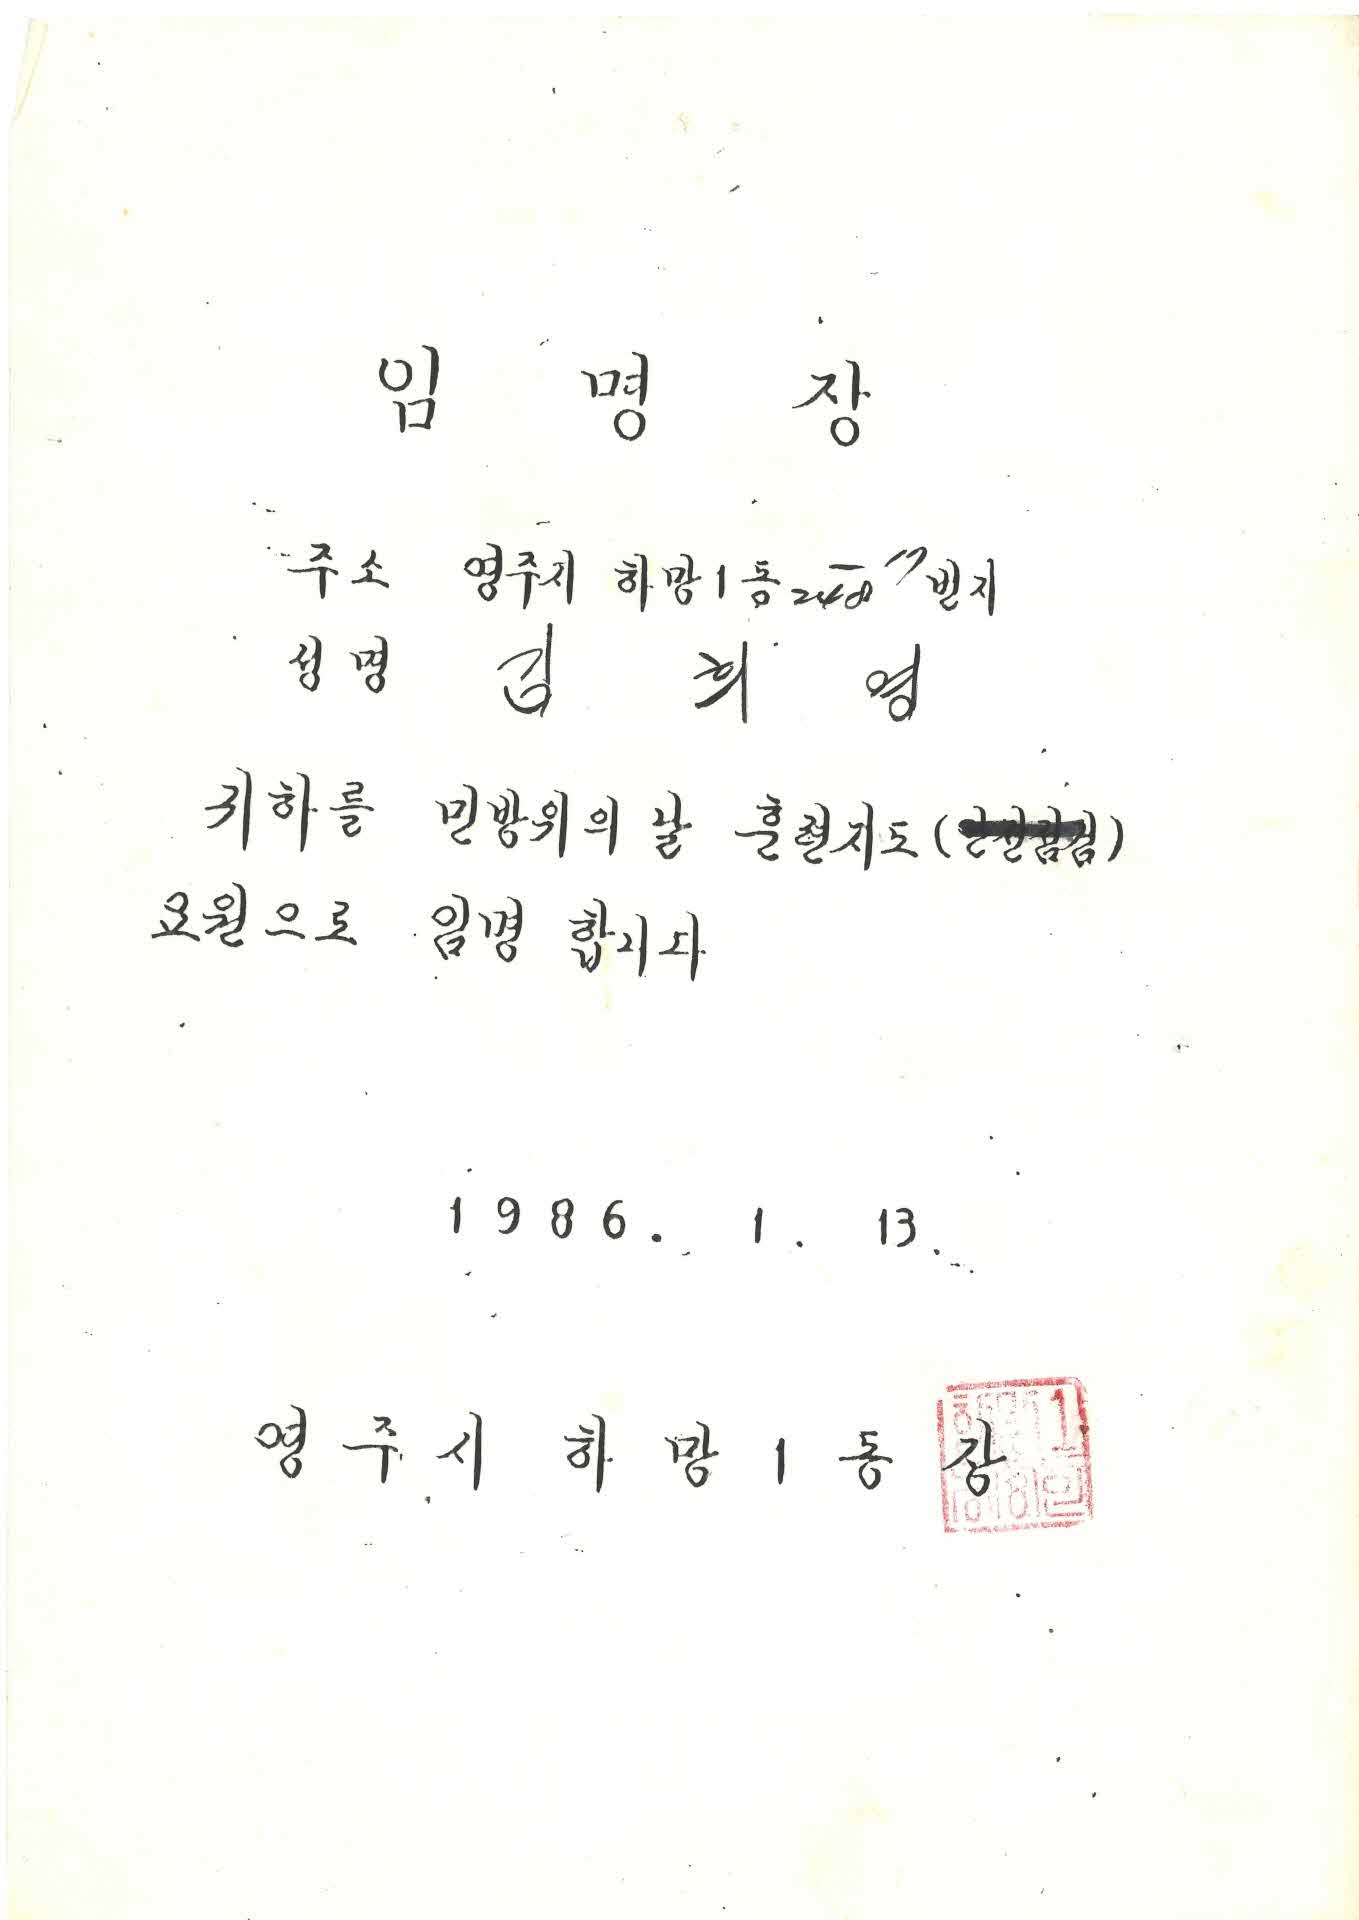 임 명 장
주소 영주시 하망1동 248-17번지
성명 김 희 영
귀하를 민방위의 날 훈련지도( )
요원으로 임명 합니다
1986. 1. 13.
영 주 시 하 망 1 동 장